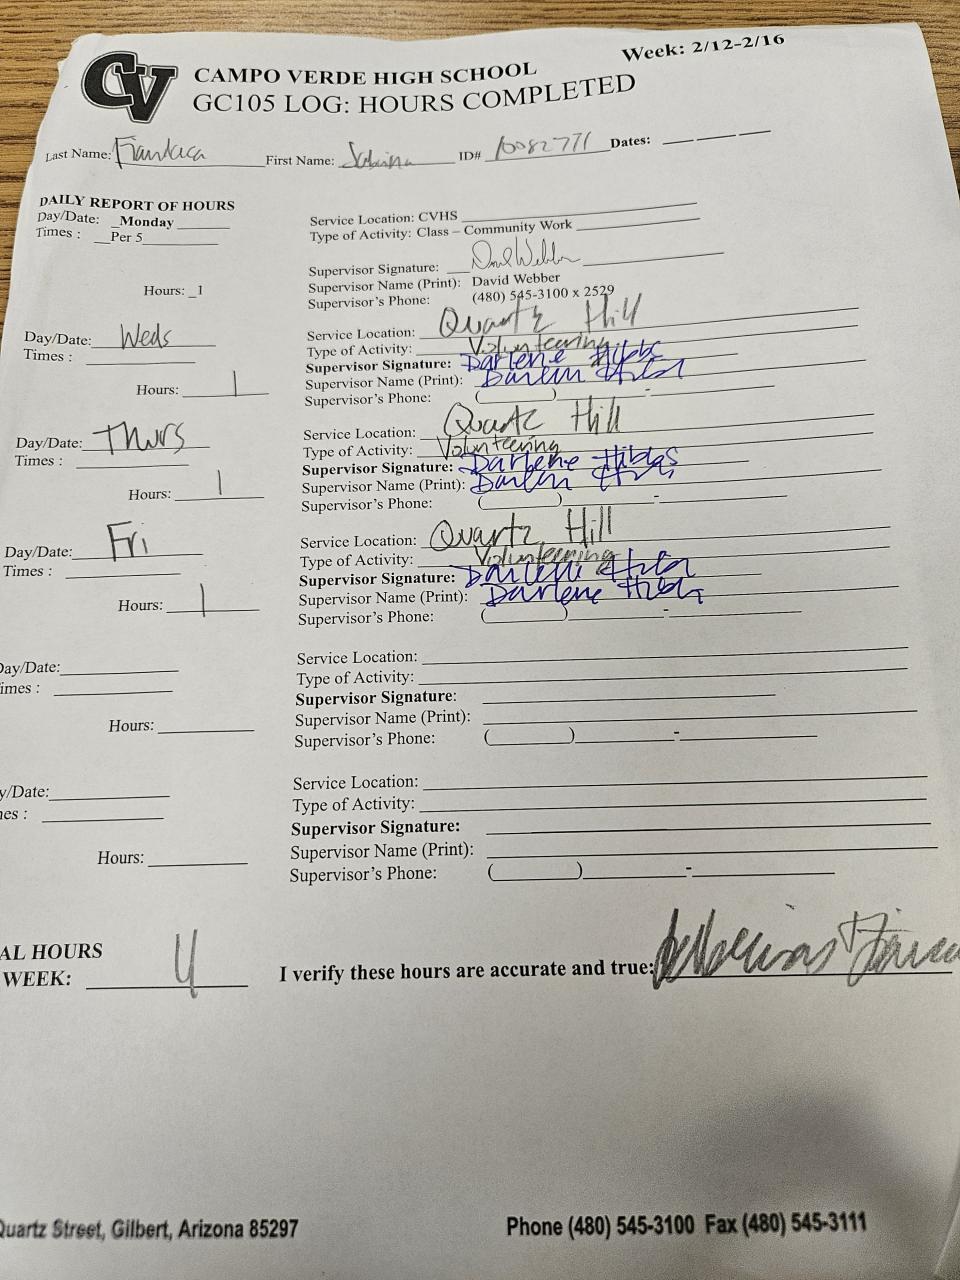 CV
Week: 2/12-2/16
CAMPO VERDE HIGH SCHOOL
GC105 LOG: HOURS COMPLETED
Last Name: First Name: Sabrina ID# 10082771 Dates:
DAILY REPORT OF HOURS
Day/Date: Monday
Times : Per 5
Service Location: CVHS
Type of Activity: Class – Community Work
Supervisor Signature: David Webber
Hours: 1
Supervisor Name (Print): David Webber
Supervisor's Phone: (480) 545-3100 x 2529
Day/Date: Weds
Times :
Service Location: Quartz Hill
Type of Activity: Volunteering
Supervisor Signature: Darlene Hibbs
Hours: 1
Supervisor Name (Print): Darlene
Supervisor's Phone: ( ) -
Day/Date: Thurs
Times :
Service Location: Quartz Hill
Type of Activity: Volunteering
Supervisor Signature: Darlene Hibbs
Hours: 1
Supervisor Name (Print): Darlene
Supervisor's Phone: ( ) -
Day/Date: Fri
Times :
Service Location: Quartz Hill
Type of Activity: Volunteering
Supervisor Signature: Darlene
Hours: 1
Supervisor Name (Print): Darlene
Supervisor's Phone: ( ) -
Day/Date:
imes :
Service Location:
Type of Activity:
Supervisor Signature:
Hours:
Supervisor Name (Print):
Supervisor's Phone: ( ) -
y/Date:
nes :
Service Location:
Type of Activity:
Supervisor Signature:
Hours:
Supervisor Name (Print):
Supervisor's Phone: ( ) -
AL HOURS
WEEK: 4
I verify these hours are accurate and true:
Quartz Street, Gilbert, Arizona 85297
Phone (480) 545-3100 Fax (480) 545-3111